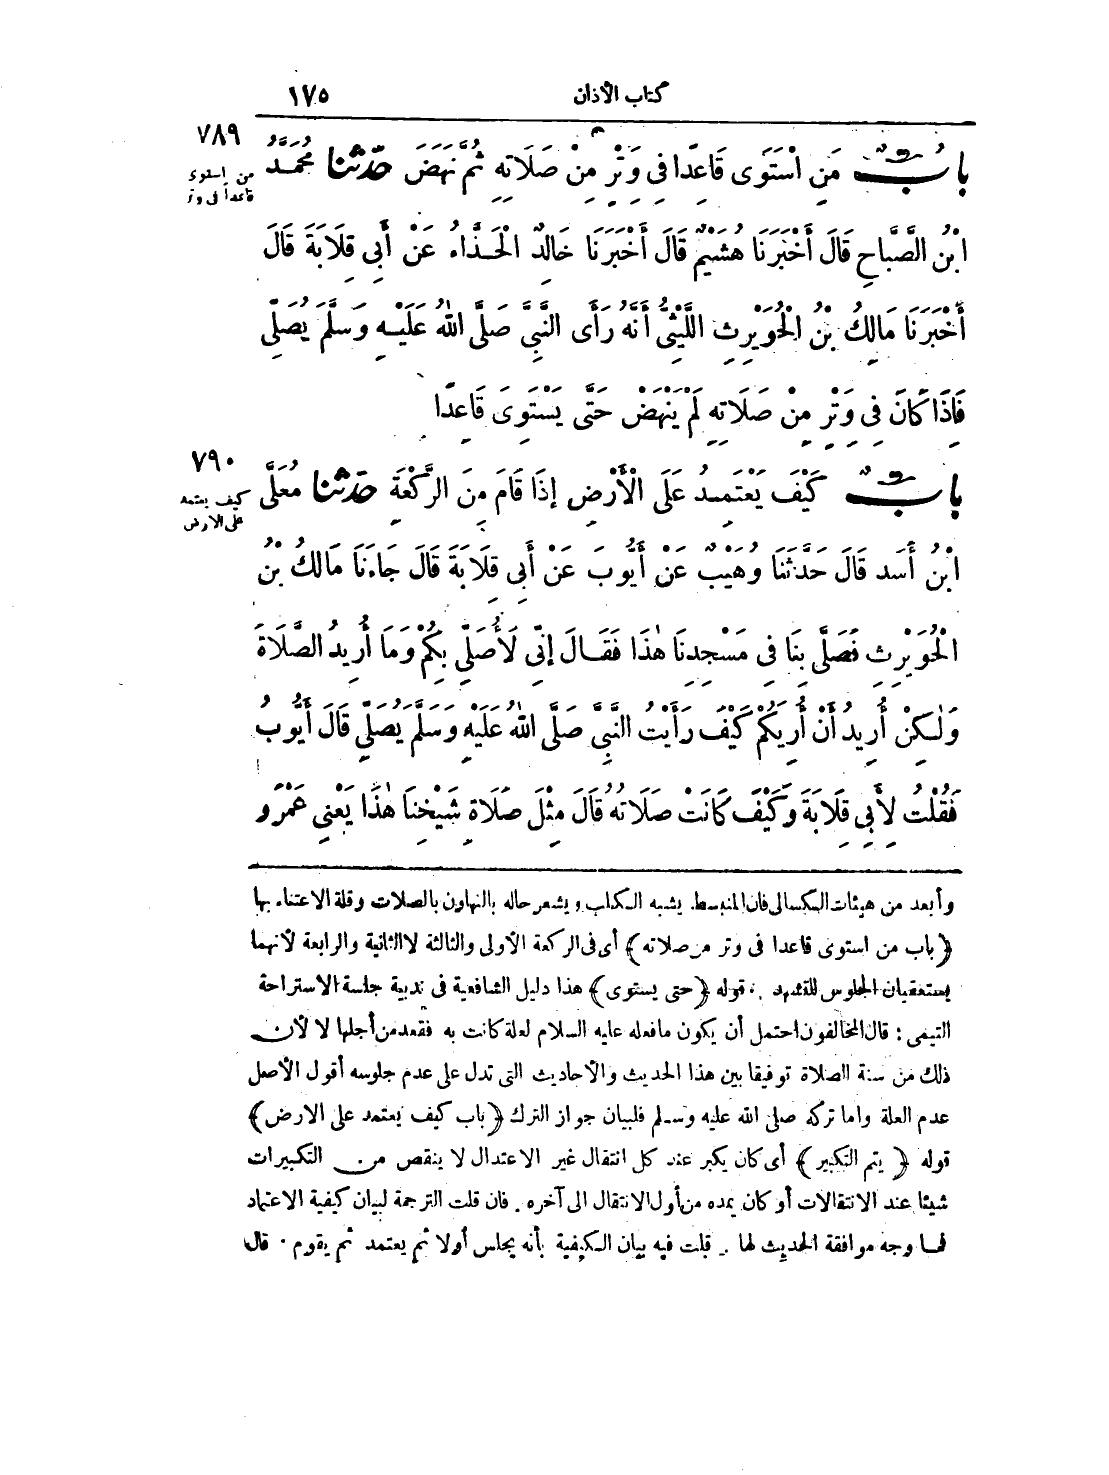 كتاب الأذان ١٧٥
٧٨٩
من استوى
قاعدا فى وتر
بابُ مَنِ اسْتَوَى قَاعِدًا فِي وَتْرٍ مِنْ صَلَاتِهِ ثُمَّ نَهَضَ حَدَّثَنَا مُحَمَّدُ
ابْنُ الصَّبَّاحِ قَالَ أَخْبَرَنَا هُشَيْمٌ قَالَ أَخْبَرَنَا خَالِدٌ الْحَذَّاءُ عَنْ أَبِي قِلَابَةَ قَالَ
أَخْبَرَنَا مَالِكُ بْنُ الْحُوَيْرِثِ اللَّيْثِيُّ أَنَّهُ رَأَى النَّبِيَّ صَلَّى اللهُ عَلَيْهِ وَسَلَّمَ يُصَلِّي
فَإِذَا كَانَ فِي وَتْرٍ مِنْ صَلَاتِهِ لَمْ يَنْهَضْ حَتَّى يَسْتَوِىَ قَاعِدًا
٧٩٠
كيف يعتمد
على الارض
بابٌ كَيْفَ يَعْتَمِدُ عَلَى الْأَرْضِ إِذَا قَامَ مِنَ الرَّكْعَةِ حَدَّثَنَا مُعَلَّى
ابْنُ أَسَدٍ قَالَ حَدَّثَنَا وُهَيْبٌ عَنْ أَيُّوبَ عَنْ أَبِي قِلَابَةَ قَالَ جَاءَنَا مَالِكُ بْنُ
الْحُوَيْرِثِ فَصَلَّى بِنَا فِي مَسْجِدِنَا هٰذَا فَقَالَ إِنِّي لَأُصَلِّي بِكُمْ وَمَا أُرِيدُ الصَّلَاةَ
وَلٰكِنْ أُرِيدُ أَنْ أُرِيَكُمْ كَيْفَ رَأَيْتُ النَّبِيَّ صَلَّى اللهُ عَلَيْهِ وَسَلَّمَ يُصَلِّي قَالَ أَيُّوبُ
فَقُلْتُ لِأَبِي قِلَابَةَ وَكَيْفَ كَانَتْ صَلَاتُهُ قَالَ مِثْلَ صَلَاةِ شَيْخِنَا هٰذَا يَعْنِي عَمْرَو
وأبعد من هيئات الكسالى فان المنبسط يشبه الكلب ويشعر حاله بالتهاون بالصلات وقلة الاعتناء بها
﴿باب من استوى قاعدا فى وتر من صلاته﴾ أى فى الركعة الأولى والثالثة لا الثانية والرابعة لأنهما
يستعقبان الجلوس للتشهد. قوله ﴿حتى يستوى﴾ هذا دليل الشافعية فى ندبية جلسة الاستراحة
التيمى: قال المخالفون احتمل أن يكون مافعله عليه السلام لعلة كانت به فقعد من أجلها لا لأن
ذلك من سنة الصلاة توفيقا بين هذا الحديث والأحاديث التى تدل على عدم جلوسه أقول الأصل
عدم العلة واما تركه صلى الله عليه وسلم فلبيان جواز الترك ﴿باب كيف يعتمد على الارض﴾
قوله ﴿يتم التكبير﴾ أى كان يكبر عند كل انتقال غير الاعتدال لا ينقص من التكبيرات
شيئا عند الانتقالات أو كان يمده من أول الانتقال الى آخره. فان قلت الترجمة لبيان كيفية الاعتماد
فما وجه موافقة الحديث لها. قلت فيه بيان الكيفية بأنه يجلس أولا ثم يعتمد ثم يقوم. قال